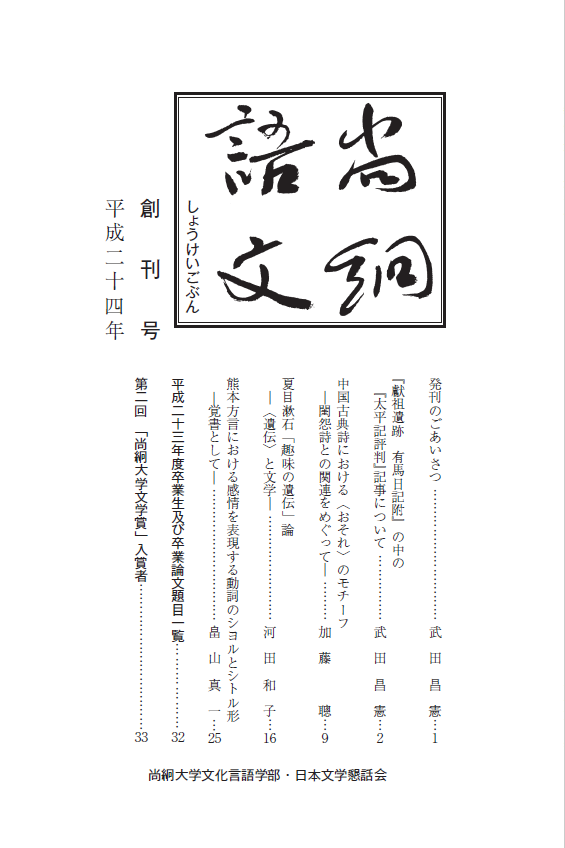 尚絅
語文
しょうけいごぶん
創刊号
平成二十四年
発刊のごあいさつ…………………………武田昌憲…1
『獻祖遺跡 有馬日記附』の中の
『太平記評判』記事について………………武田昌憲…2
中国古典詩における〈おそれ〉のモチーフ
―閨怨詩との関連をめぐって―…………加藤 聰…9
夏目漱石「趣味の遺伝」論
―〈遺伝〉と文学―…………………………河田和子…16
熊本方言における感情を表現する動詞のショルとシトル形
―覚書として―………………………………畠山真一…25
平成二十三年度卒業生及び卒業論文題目一覧…………………32
第二回 「尚絅大学文学賞」入賞者…………………………………33
尚絅大学文化言語学部・日本文学懇話会